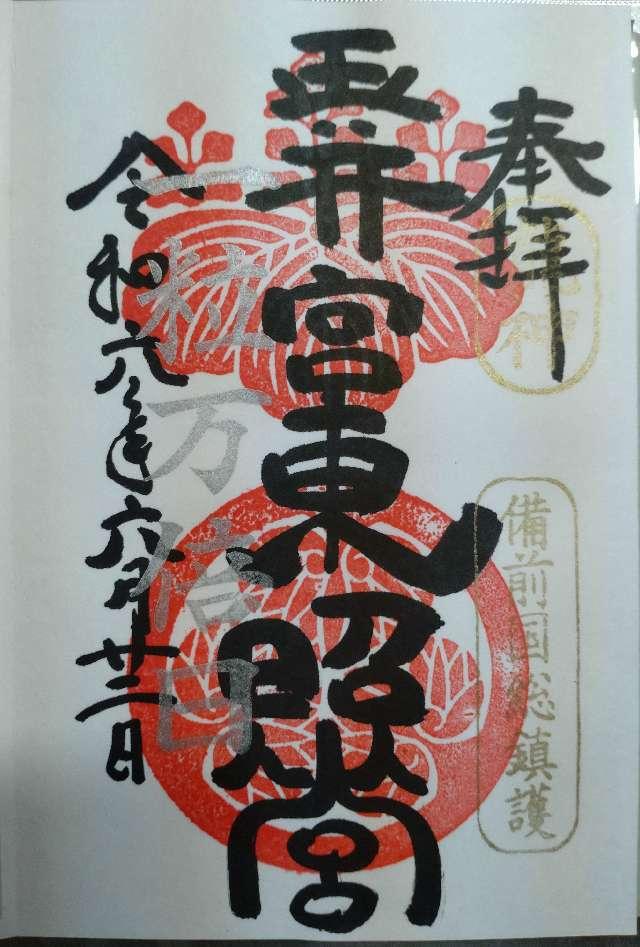 奉拝
備前国総鎮護
玉井宮東照宮
一粒万倍日
令和六年六月廿二日